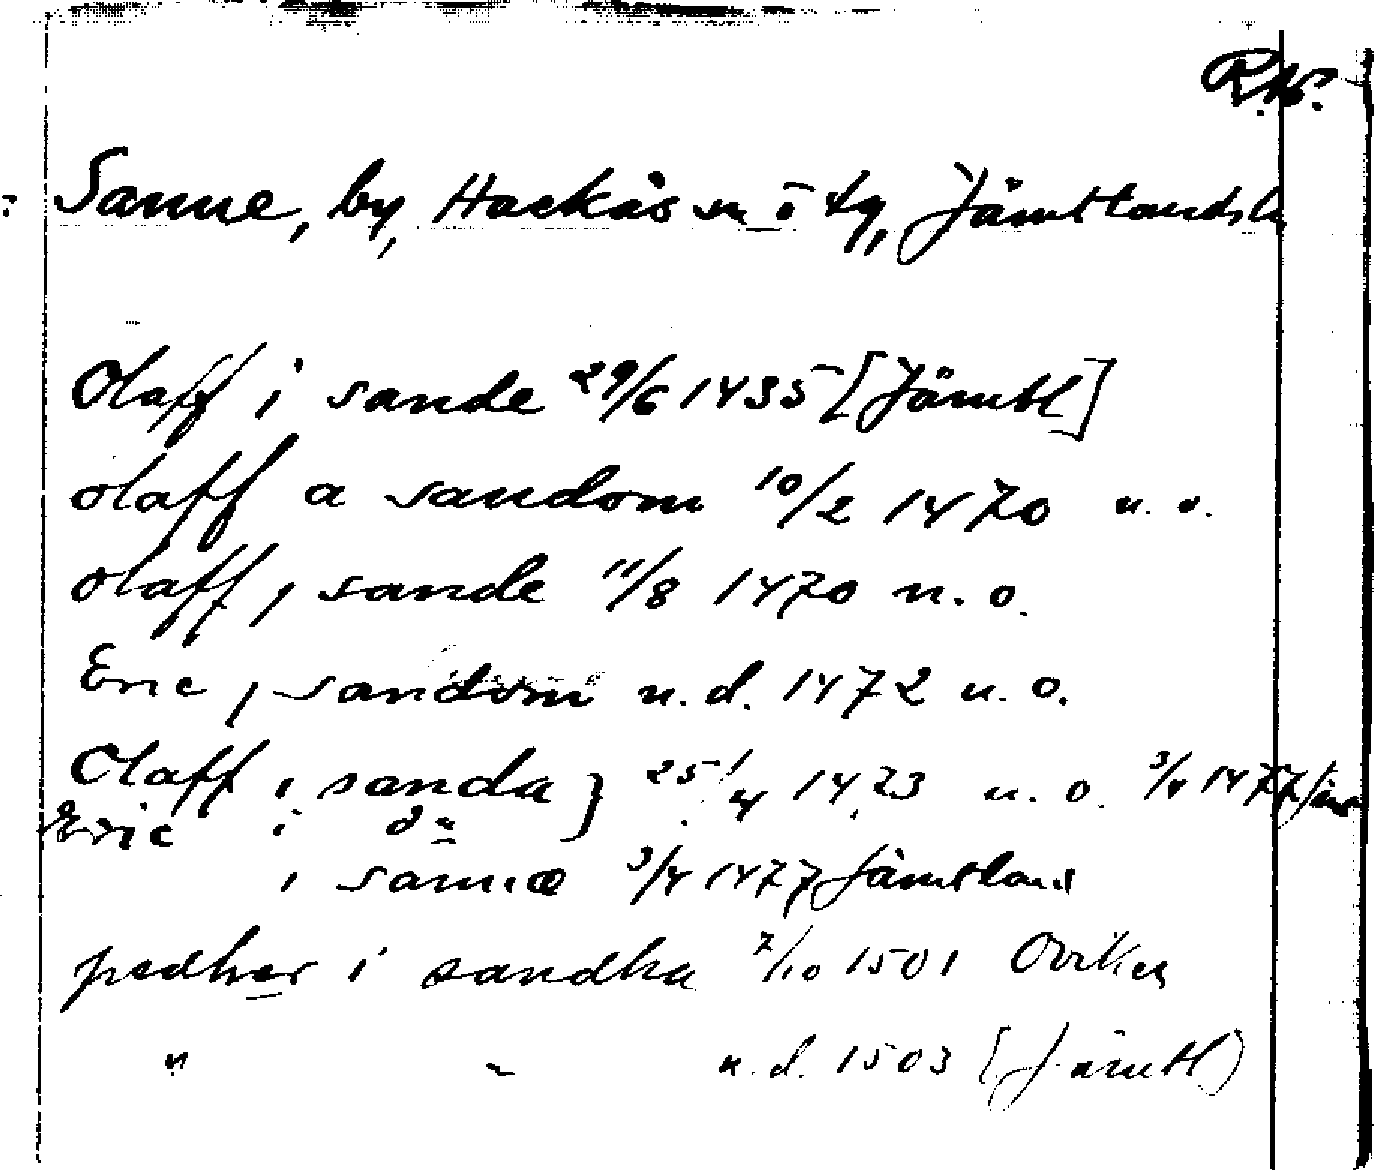 Sanne, by, Hackås sn ö tg, Jämtlands l.
Olaff i sande 29/6 1435 [Jämtl]
olaff a sandom 10/2 1470 n. o.
olaff i sande 11/8 1470 n. o.
Eric i sandom n. d. 1472 n. o.
Olaff i sanda } 25/4 1473 n. o. 3/4 1477 Jäm
Eric i do
i sannæ 3/4 1477 Jämtland
pedher i sandha 7/10 1501 Oviken
" " n. d. 1503 [Jämtl]